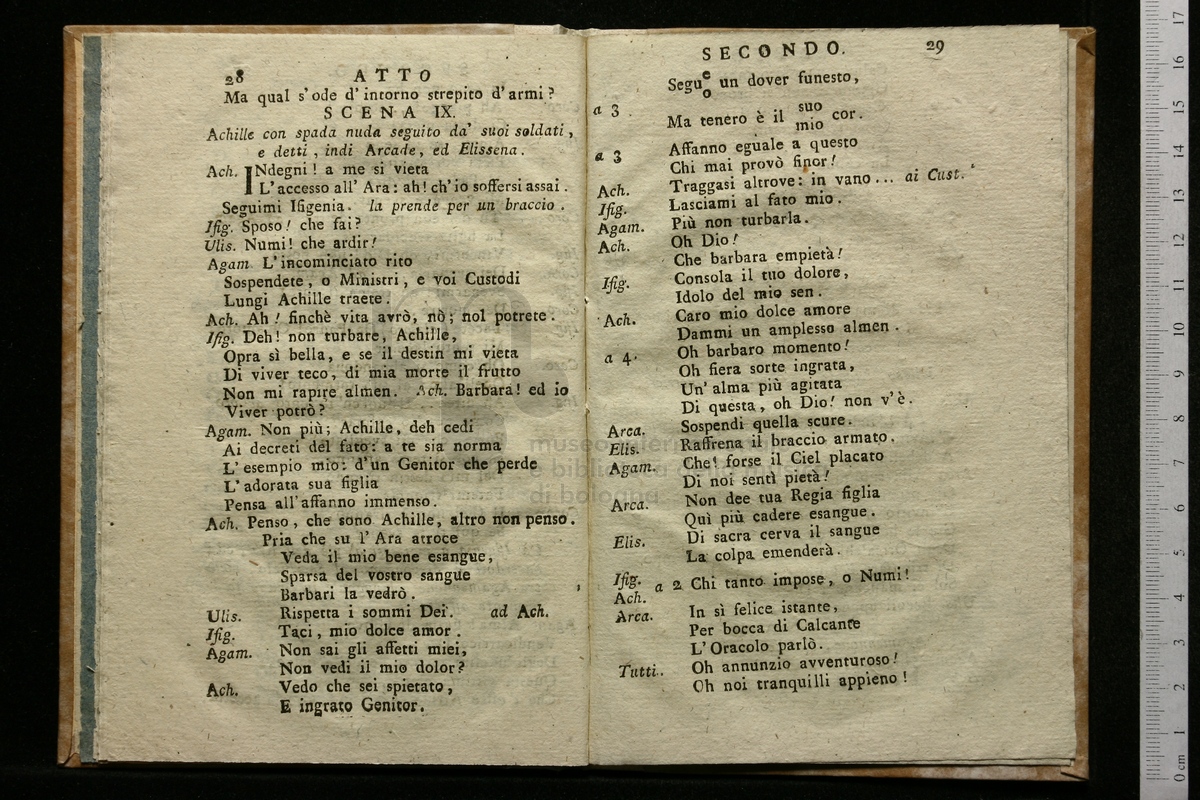 28 ATTO
Ma qual s'ode d'intorno strepito d'armi?
SCENA IX.
Achille con spada nuda seguito da' suoi soldati,
e detti, indi Arcade, ed Elissena.
Ach. INdegni! a me si vieta
L'accesso all' Ara: ah! ch'io soffersi assai.
Seguimi Ifigenia. la prende per un braccio.
Ifig. Sposo! che fai?
Ulis. Numi! che ardir!
Agam. L'incominciato rito
Sospendete, o Ministri, e voi Custodi
Lungi Achille traete.
Ach. Ah! finchè vita avrò, nò; nol potrete.
Ifig. Deh! non turbare, Achille,
Opra sì bella, e se il destin mi vieta
Di viver teco, di mia morte il frutto
Non mi rapire almen. Ach. Barbara! ed io
Viver potrò?
Agam. Non più; Achille, deh cedi
Ai decreti del fato: a te sia norma
L'esempio mio: d'un Genitor che perde
L'adorata sua figlia
Pensa all'affanno immenso.
Ach. Penso, che sono Achille, altro non penso.
Pria che su l'Ara atroce
Veda il mio bene esangue,
Sparsa del vostro sangue
Barbari la vedrò.
Ulis. Rispetta i sommi Dei. ad Ach.
Ifig. Taci, mio dolce amor.
Agam. Non sai gli affetti miei,
Non vedi il mio dolor?
Ach. Vedo che sei spietato,
E ingrato Genitor.
SECONDO. 29
a 3 Segu e o un dover funesto,
Ma tenero è il suo mio cor.
a 3 Affanno eguale a questo
Chi mai provò finor!
Ach. Traggasi altrove: in vano... ai Cust.
Ifig. Lasciami al fato mio.
Agam. Più non turbarla.
Ach. Oh Dio!
Che barbara empietà!
Ifig. Consola il tuo dolore,
Idolo del mio sen.
Ach. Caro mio dolce amore
Dammi un amplesso almen.
a 4. Oh barbaro momento!
Oh fiera sorte ingrata,
Un'alma più agitata
Di questa, oh Dio! non v'è.
Arca. Sospendi quella scure.
Elis. Raffrena il braccio armato.
Agam. Che! forse il Ciel placato
Di noi sentì pietà!
Arca. Non dee tua Regia figlia
Quì più cadere esangue.
Elis. Di sacra cerva il sangue
La colpa emenderà.
Ifig. Ach. a 2 Chi tanto impose, o Numi!
Arca. In sì felice istante,
Per bocca di Calcante
L'Oracolo parlò.
Tutti. Oh annunzio avventuroso!
Oh noi tranquilli appieno!